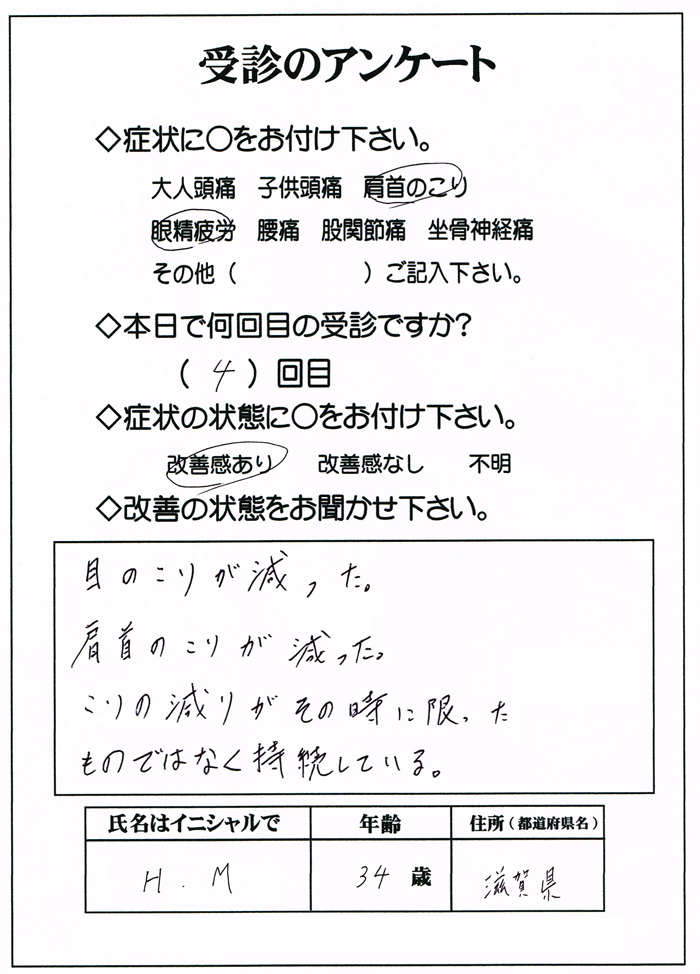 受診のアンケート
◇症状に○をお付け下さい。
大人頭痛 子供頭痛 肩首のこり
眼精疲労 腰痛 股関節痛 坐骨神経痛
その他（ ）ご記入下さい。
◇本日で何回目の受診ですか？
（ 4 ）回目
◇症状の状態に○をお付け下さい。
改善感あり 改善感なし 不明
◇改善の状態をお聞かせ下さい。
目のこりが減った。
肩首のこりが減った。
こりの減りがその時に限った
ものではなく持続している。
氏名はイニシャルで 年齢 住所（都道府県名）
H．M 34 歳 滋賀県